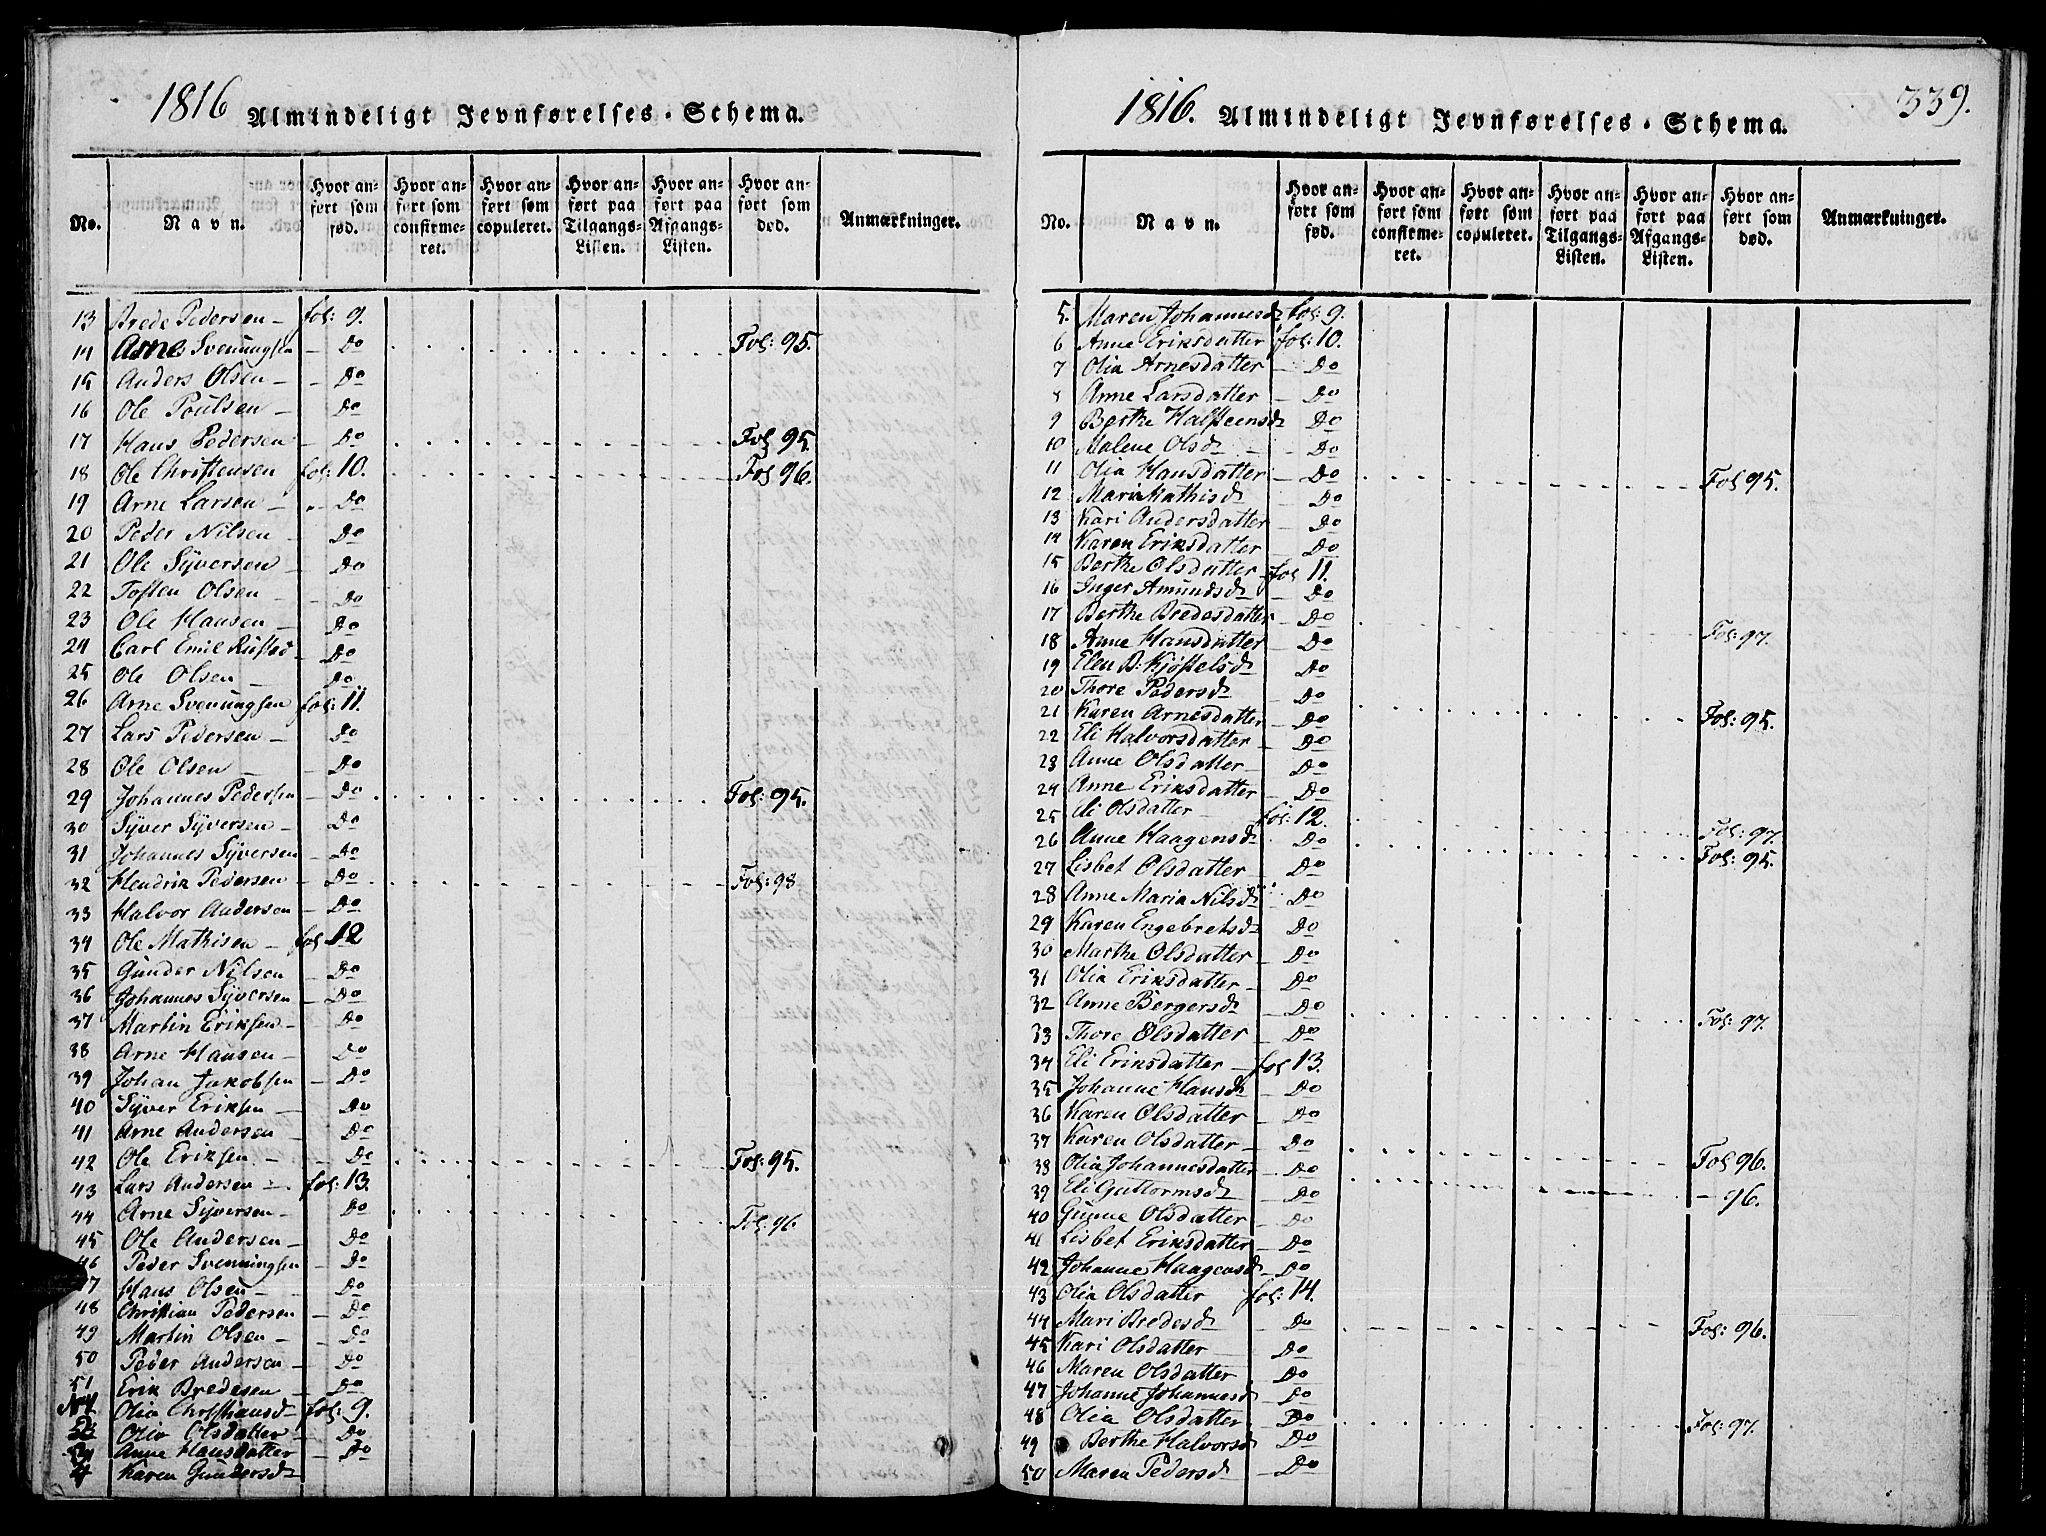 1816 Almindeligt Jevnførelses-Schema.
No. Navn. Hvor anført som fød. Hvor anført som confirmeret. Hvor anført som copuleret. Hvor anført paa Tilgangs-Listen. Hvor anført paa Afgangs-Listen. Hvor anført som død. Anmærkninger.
13 Brede Pedersen fol: 9.
14 Arne Svenningsen Do Fol: 95.
15 Anders Olsen Do
16 Ole Poulsen Do
17 Hans Pedersen Do Fol 95
18 Ole Christensen fol: 10. Fol 96.
19 Arne Larsen Do
20 Peder Nilsen Do
21 Ole Syversen Do
22 Tosten Olsen Do
23 Ole Hansen Do
24 Carl Emil Rustad Do
25 Ole Olsen Do
26 Arne Svenningsen fol: 11.
27 Lars Pedersen Do
28 Ole Olsen Do
29 Johannes Pedersen Do Fol: 95.
30 Syver Syversen Do
31 Johannes Syversen Do
32 Hendrik Pedersen Do Fol: 98
33 Halvor Andersen Do
34 Ole Mathisen fol 12
35 Gunder Nilsen Do
36 Johannes Syversen Do
37 Martin Eriksen Do
38 Arne Hansen Do
39 Johan Jakobsen Do
40 Syver Eriksen Do
41 Arne Andersen Do
42 Ole Eriksen Do Fol: 95.
43 Lars Andersen fol: 13.
44 Arne Syversen Do Fol: 96
45 Ole Andersen Do
46 Peder Svenningsen Do
47 Hans Olsen Do
48 Christian Pedersen Do
49 Martin Olsen Do
50 Peder Andersen Do
51 Erik Bredesen Do
Olia Christiansd fol: 9.
2 Olia Olsdatter Do
Anne Hansdatter Do
4 Karen Gundersd
1816. Almindeligt Jevnførelses-Schema. 339.
No. Navn. Hvor anført som fød. Hvor anført som confirmeret. Hvor anført som copuleret. Hvor anført paa Tilgangs-Listen. Hvor anført paa Afgangs-Listen. Hvor anført som død. Anmærkninger.
5. Maren Johannesd fol: 9.
6 Anne Eriksdatter fol: 10.
7 Olia Arnesdatter Do
8 Anne Larsdatter Do
9 Berthe Halsteensd Do
10 Malene Olsd Do
11 Olia Hansdatter Do Fol 95.
12 Maria Mathisd Do
13 Kari Andersdatter Do
14 Karen Eriksdatter Do
15 Berthe Olsdatter fol 11.
16 Inger Amundsd Do
17 Berthe Bredesdatter Do Fol: 97.
18 Anne Hansdatter Do
19 Elen B: Kjøstelsd Do
20 Thore Pedersd Do
21 Karen Arnesdatter Do Fol: 95.
22 Eli Halvorsdatter Do
23 Anne Olsdatter Do
24 Anne Eriksdatter Do
25 Eli Olsdatter fol: 12. Fol: 97.
26 Anne Haagensd Do Fol: 95.
27 Lisbet Olsdatter Do
28 Anne Maria Nilsd Do
29 Karen Engebretsd Do
30 Marthe Olsdatter Do
31 Olia Eriksdatter Do
32 Anne Bergersd Do Fol: 97.
33 Thore Olsdatter Do
34 Eli Eriksdatter fol 13.
35 Johanne Hansd Do
36 Karen Olsdatter Do
37 Karen Olsdatter Do Fol 96.
38 Olia Johannesdatter Do
39 Eli Guttormsd Do 96.
40 Gunne Olsdatter Do
41 Lisbet Eriksdatter Do
42 Johanne Haagensd Do
43 Olia Olsdatter fol: 14.
44 Mari Bredesd Do Fol: 96.
45 Kari Olsdatter Do
46 Maren Olsdatter Do
47 Johanne Johannesd Do
48 Olia Olsdatter Do Fol: 97.
49 Berthe Halvorsd Do
50 Maren Pedersd Do